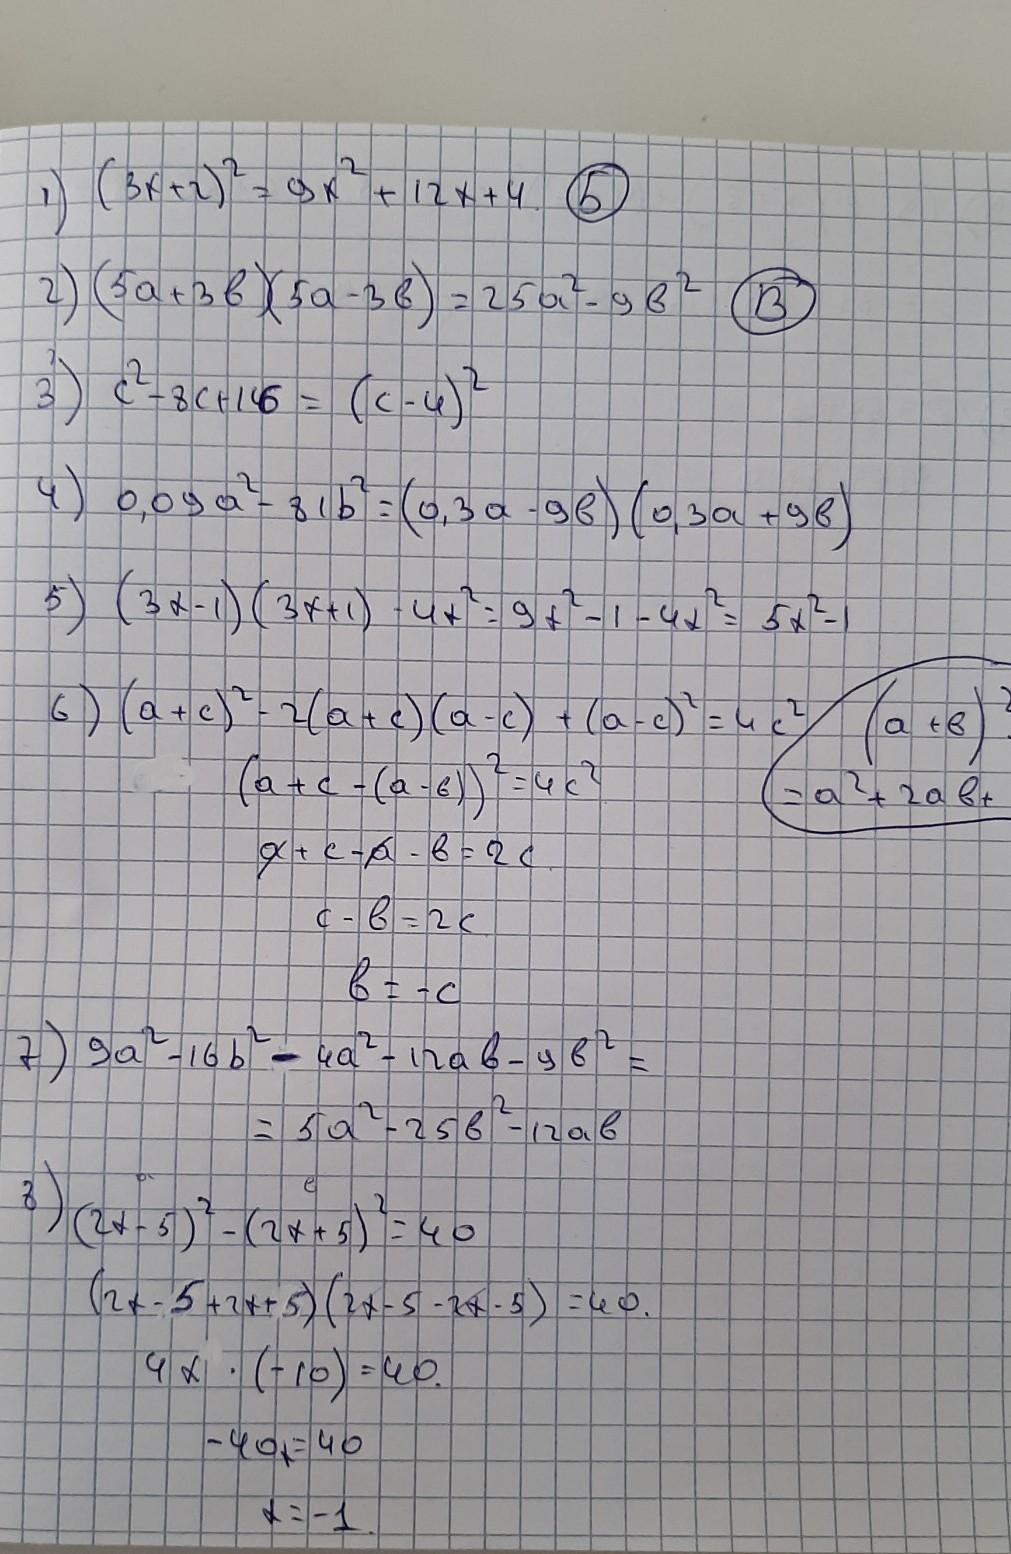 1) (3x+2)² = 9x² + 12x+4. Б
2) (5a+3в)(5a-3в) = 25a² - 9в² В
3) c² - 8c+16 = (c-4)²
4) 0,09a² - 81b² = (0,3a - 9в)(0,3a + 9в)
5) (3x-1)(3x+1) - 4x² = 9x² - 1 - 4x² = 5x² - 1
6) (a+c)² - 2(a+c)(a-c) + (a-c)² = 4c²
(a+в)²
= a² + 2aв+
(a+c - (a-в))² = 4c²
a+c-a-в = 2c
c-в = 2c
в = -c
7) 9a² - 16b² - 4a² - 12aв - 9в² =
= 5a² - 25в² - 12aв
8) (2x-5)² - (2x+5)² = 40
(2x-5+2x+5)(2x-5-2x-5) = 40.
4x · (-10) = 40.
-40x = 40
x = -1.